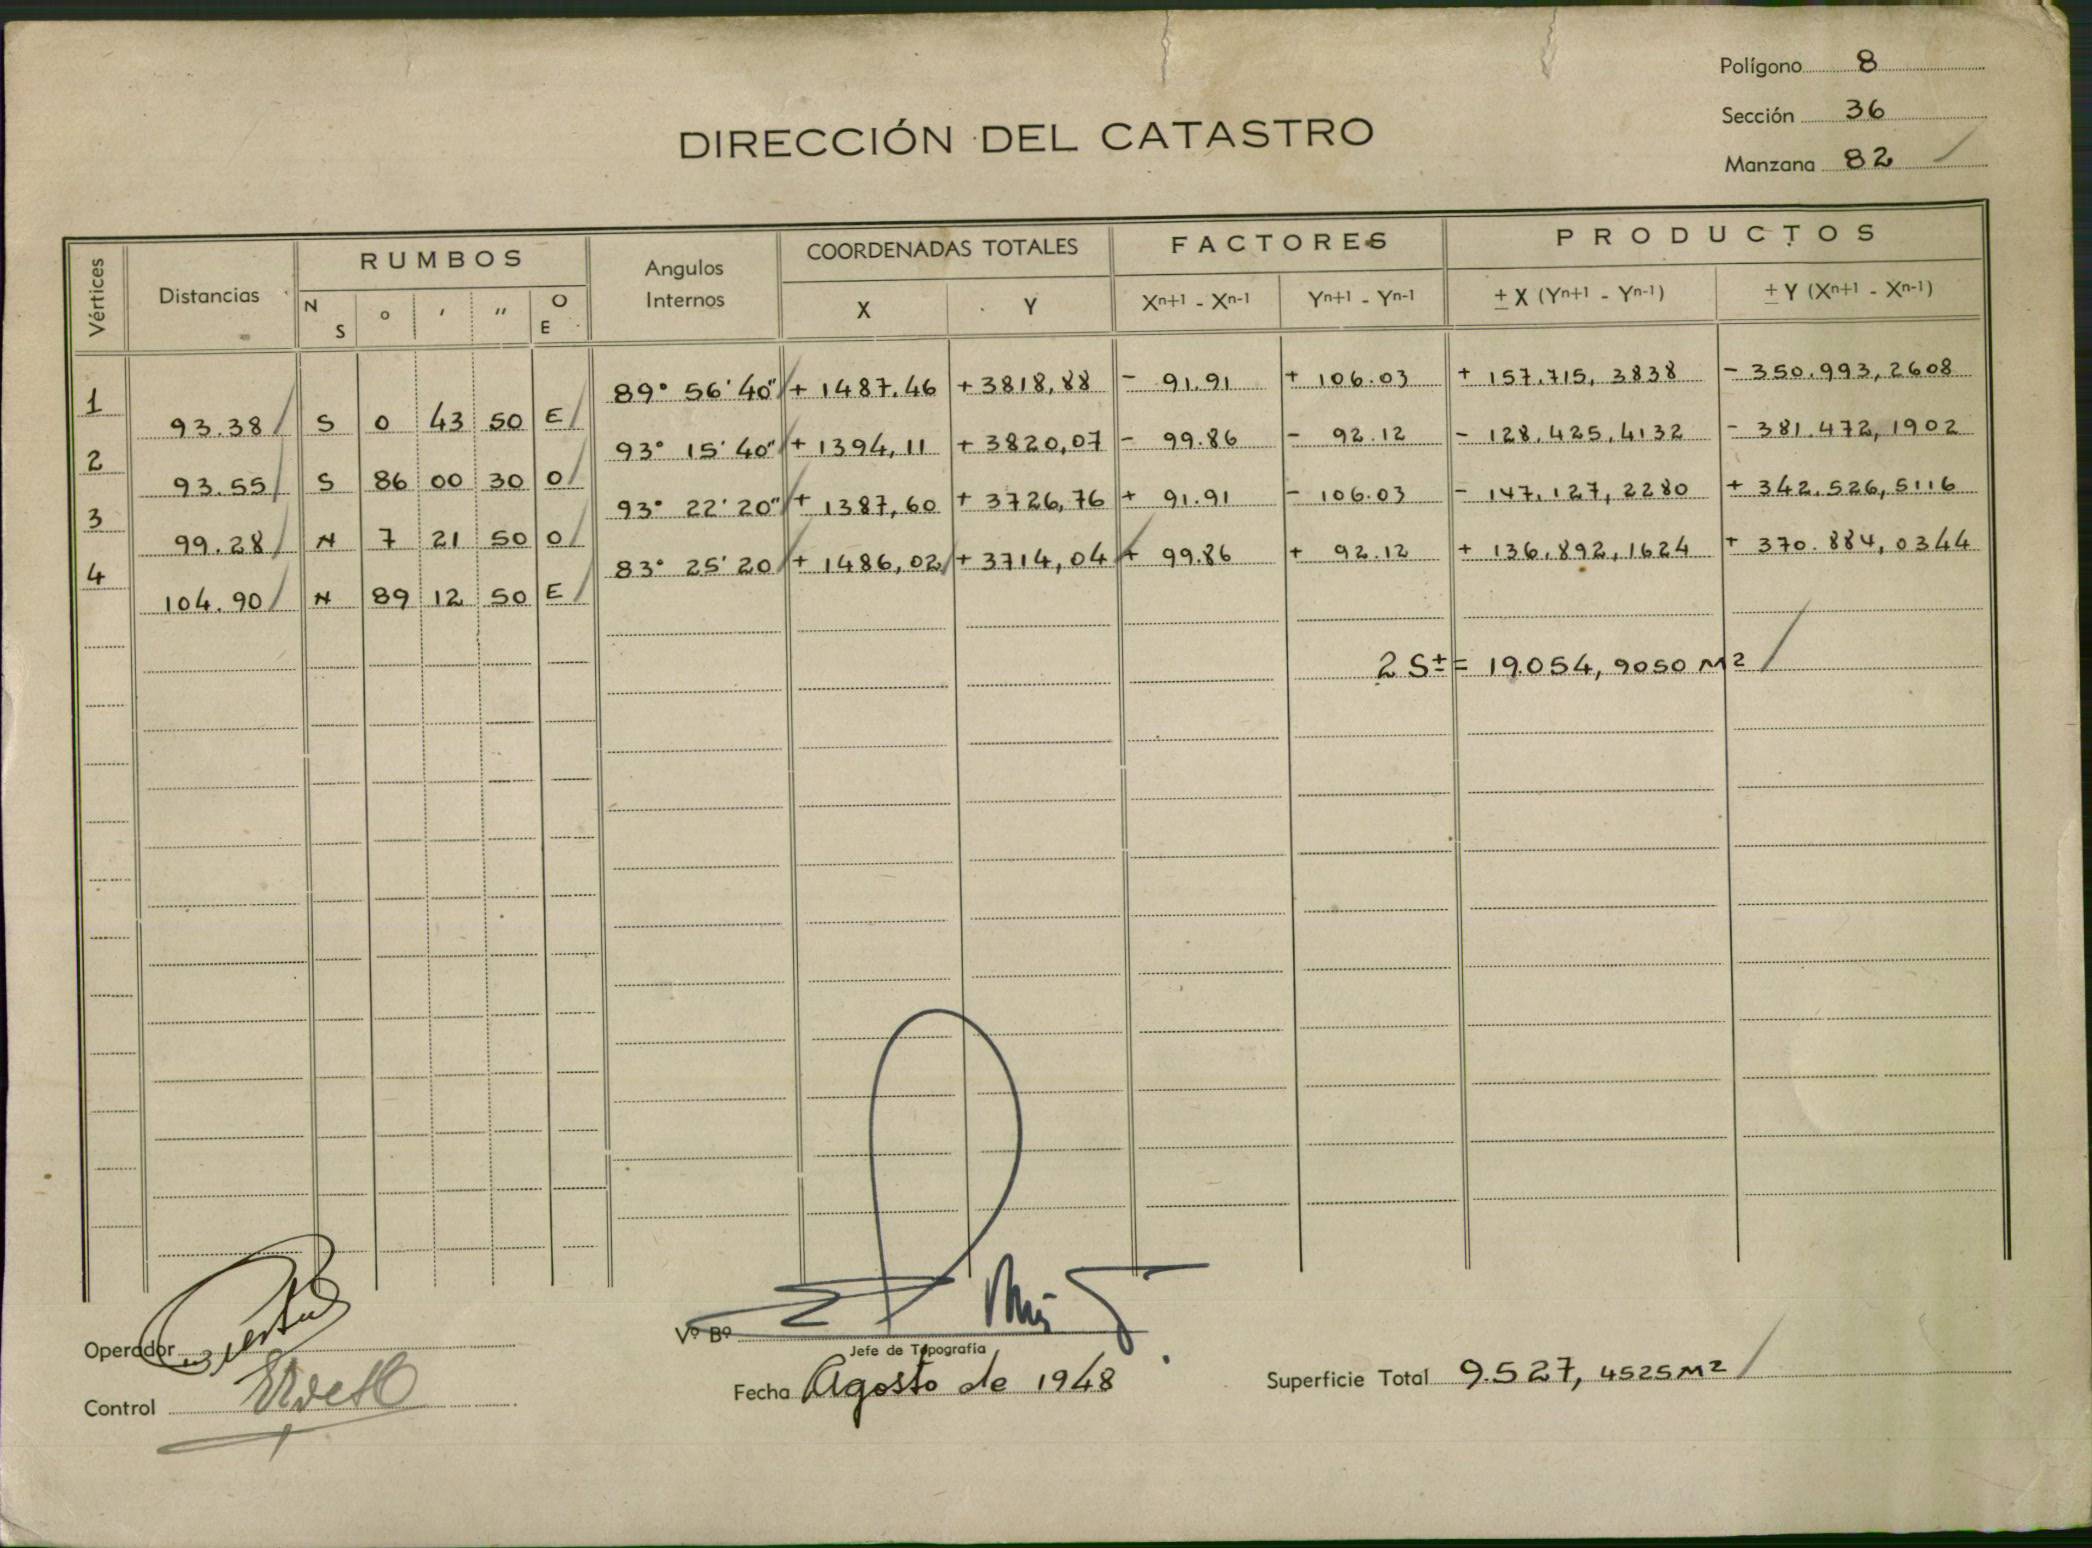 Polígono 8
Sección 36
Manzana 82
DIRECCIÓN DEL CATASTRO
Vértices Distancias RUMBOS Angulos Internos COORDENADAS TOTALES FACTORES PRODUCTOS
N S ° ' '' O E X Y Xn+1 - Xn-1 Yn+1 - Yn-1 ± X (Yn+1 - Yn-1) ± Y (Xn+1 - Xn-1)
1 89° 56' 40" + 1487.46 + 3818,88 - 91.91 + 106.03 + 157.715, 3838 - 350.993,2608
93.38 S 0 43 50 E
2 93° 15' 40" + 1394,11 + 3820,07 - 99.86 - 92.12 - 128.425,4132 - 381.472,1902
93.55 S 86 00 30 O
3 93° 22' 20" + 1387,60 + 3726,76 + 91.91 - 106.03 - 147.127,2280 + 342.526,5116
99.28 N 7 21 50 O
4 83° 25' 20 + 1486,02 + 3714,04 + 99.86 + 92.12 + 136.892,1624 + 370.884,0344
104.90 N 89 12 50 E
2 S ± = 19.054, 9050 M2
Operador
Vº Bº
Jefe de Topografía
Control
Fecha Agosto de 1948
Superficie Total 9.527, 4525 M2